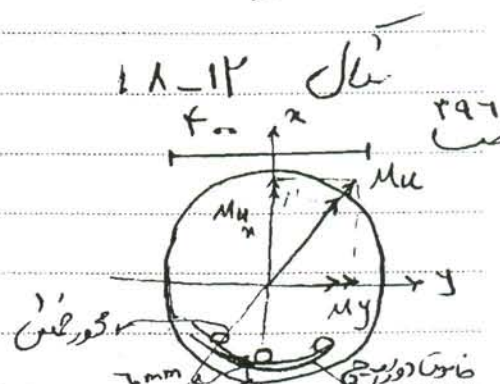 مثال ۱۲-۱۸
ص ۳۹۶
۴۰۰
x
Mu
Mux
y
My
محور خمش
mm
خاموت دورپیچی